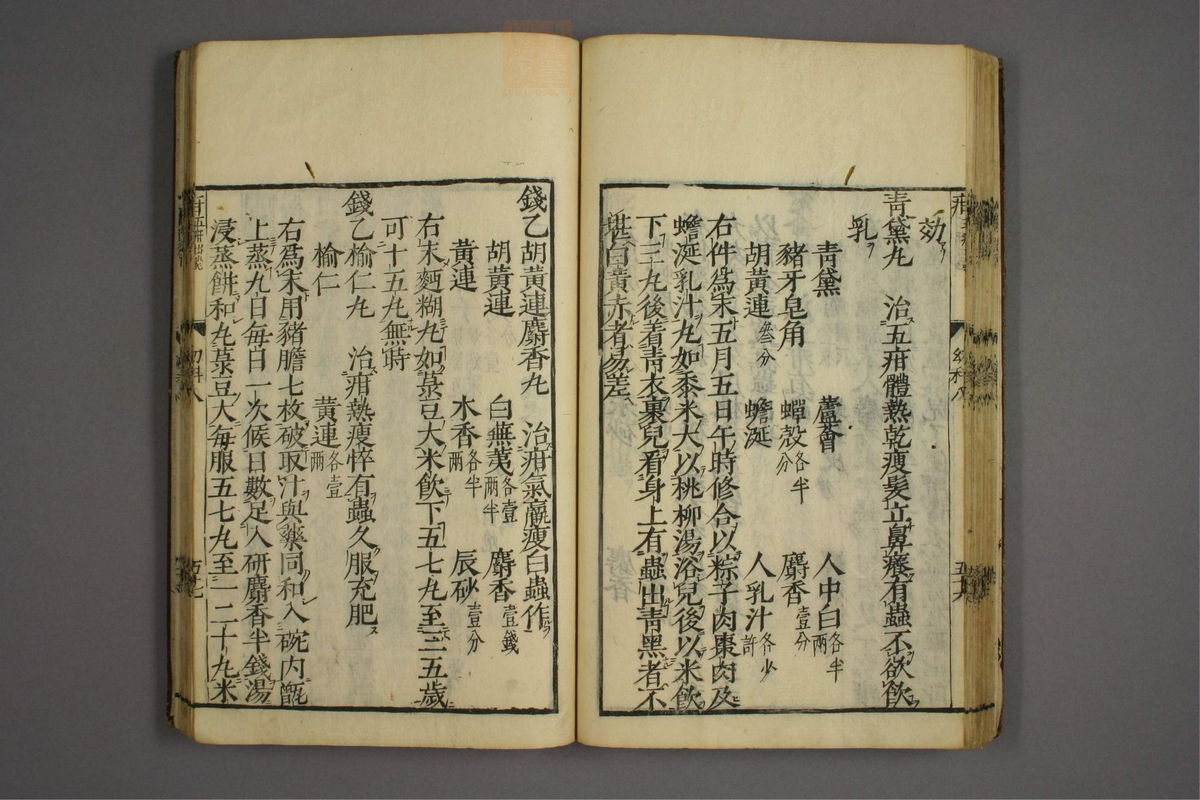 効
青黛丸 治五疳體熱乾瘦髮立鼻癢有蟲不欲飲
乳
青黛 蘆薈 人中白各半兩
豬牙皂角 蟬殼各半分 麝香壹分
胡黃連叄分 蟾涎 人乳汁各少許
右件為末五月五日午時修合以粽子肉棗肉及
蟾涎乳汁丸如黍米大以桃柳湯浴兒後以米飲
下三丸後着青衣裹兒看身上有蟲出青黑者不
堪白黃赤者易差
錢乙胡黃連麝香丸 治疳氣羸瘦白蟲作
胡黃連 白蕪荑各壹兩半 麝香壹錢
黃連 木香各半兩 辰砂壹分
右末麪糊丸如菉豆大米飲下五七丸至三五歲
可十五丸無時
錢乙榆仁丸 治疳熱瘦悴有蟲久服充肥
榆仁 黃連各壹兩
右爲末用豬膽七枚破取汁與藥同和入碗內甑
上蒸九日每日一次候日數足入研麝香半錢湯
浸蒸餅和丸菉豆大每服五七丸至一二十丸米
幼科八